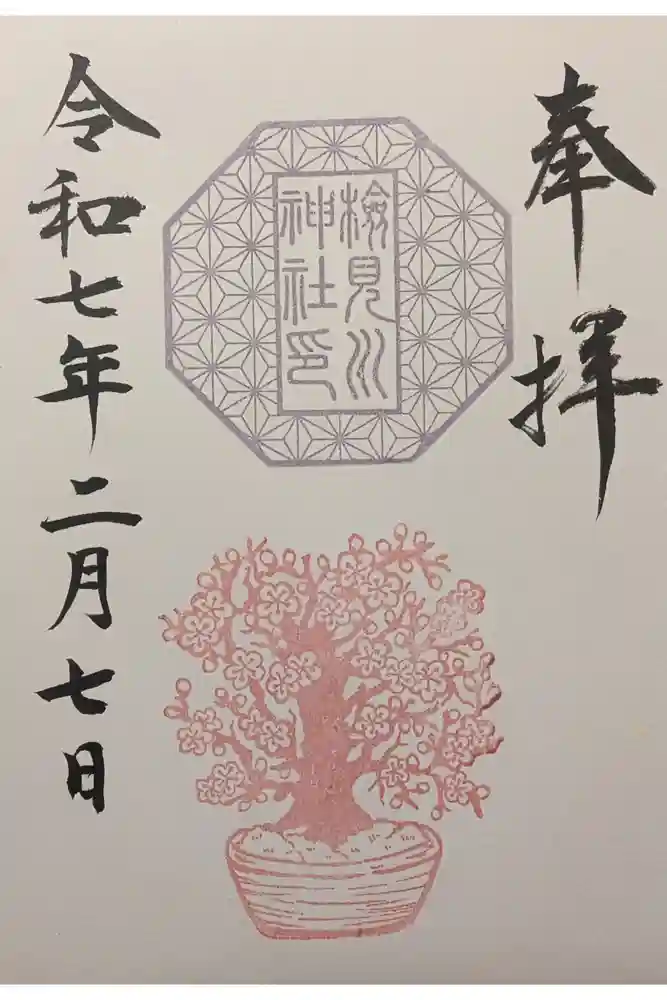 奉拝
検見川
神社印
令和七年二月七日